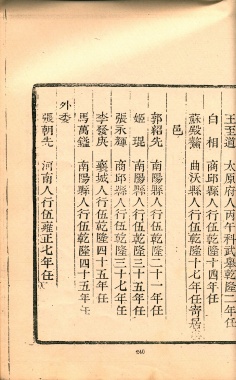 王至道 太原府人丙午科武舉乾隆二年任
白相 商邱縣人行伍乾隆十四年任
蘇殿鰲 曲沃縣人行伍乾隆十七年任寄居
邑
郭紹先 南陽縣人行伍乾隆二十一年任
姬琨 南陽縣人行伍乾隆三十五年任
張永輝 商邱縣人行伍乾隆三十七年任
李發庚 襄城人行伍乾隆四十五年任
馬萬鎰 南陽縣人行伍乾隆四十五年任
外委
張朝先 河南人行伍雍正七年任
240